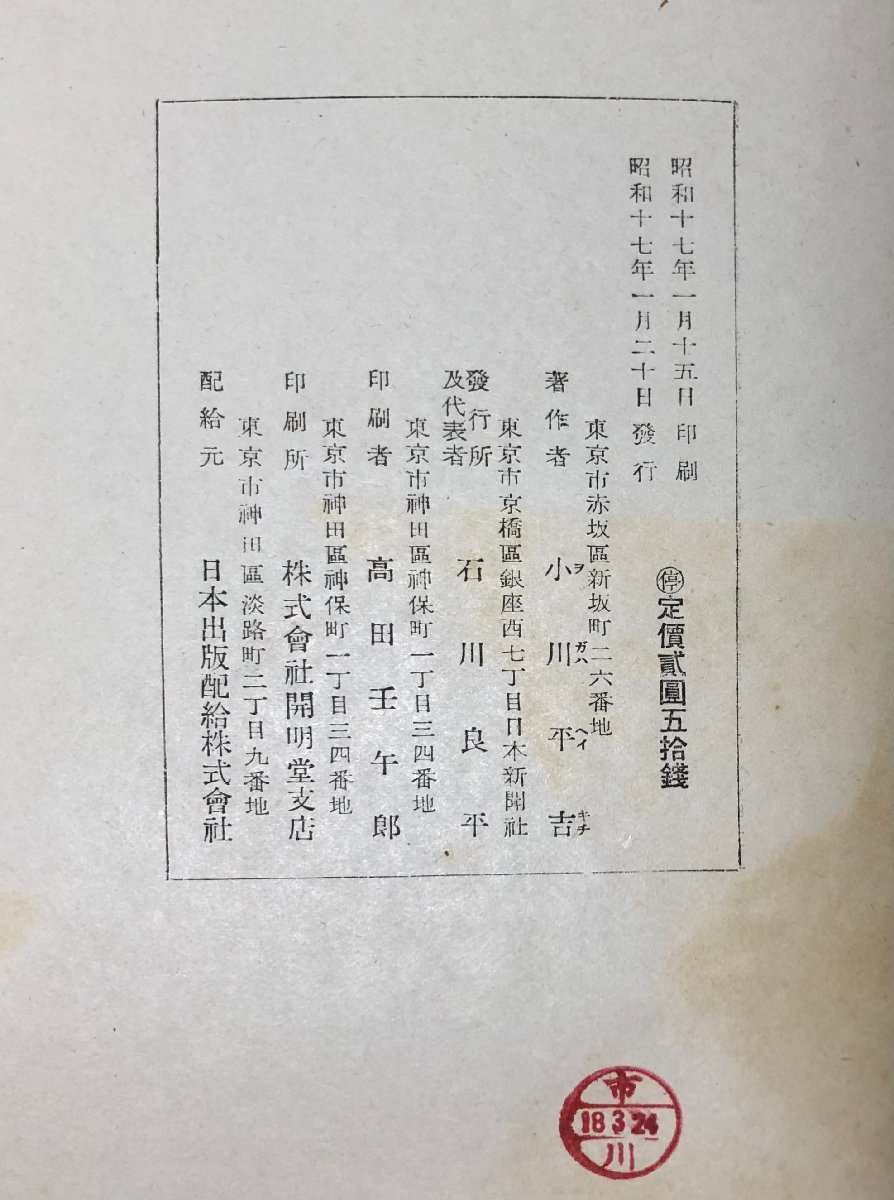 昭和十七年一月十五日印刷
昭和十七年一月二十日發行
㊡定價貳圓五拾錢
東京市赤坂區新坂町二六番地
著作者 小川平吉
ヲガハヘイキチ
東京市京橋區銀座西七丁目日本新聞社
發行所及代表者 石川良平
東京市神田區神保町一丁目三四番地
印刷者 高田壬午郎
東京市神田區神保町一丁目三四番地
印刷所 株式會社開明堂支店
東京市神田區淡路町二丁目九番地
配給元 日本出版配給株式會社
市
18.3.24
川